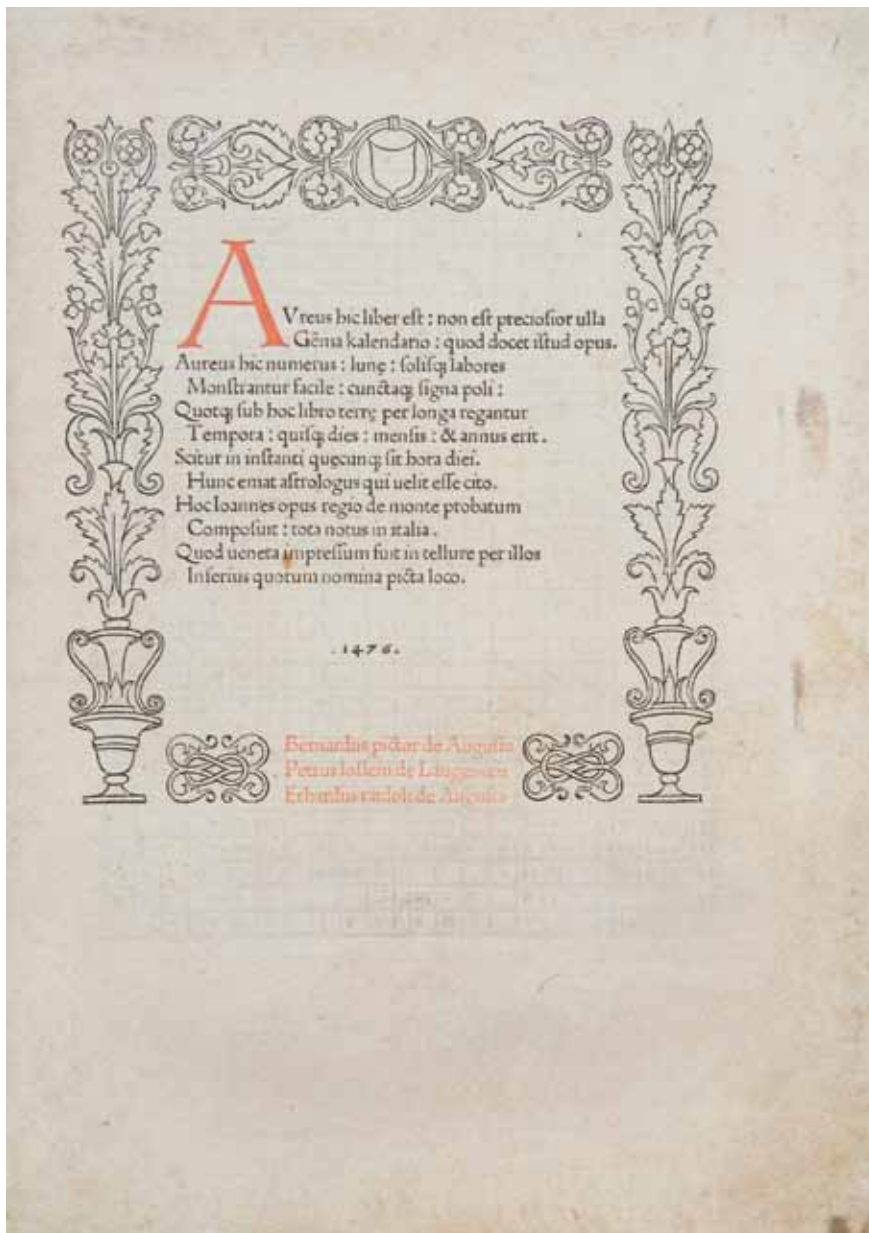 AVreus hic liber est : non est preciosior ulla
Gēma kalendario : quod docet istud opus.
Aureus hic numerus : lunę : solisqȝ labores
Monstrantur facile : cunctaqȝ signa poli :
Quotqȝ sub hoc libro terrę per longa regantur
Tempora : quisqȝ dies : mensis : & annus erit.
Scitur in instanti quecunqȝ sit hora diei.
Hunc emat astrologus qui uelit esse cito.
Hoc Ioannes opus regio de monte probatum
Composuit : tota notus in italia.
Quod ueneta impressum fuit in tellure per illos
Inferius quorum nomina picta loco.
.1476.
Bernardus pictor de Augusta
Petrus loslein de Langencen
Erhardus ratdolt de Augusta